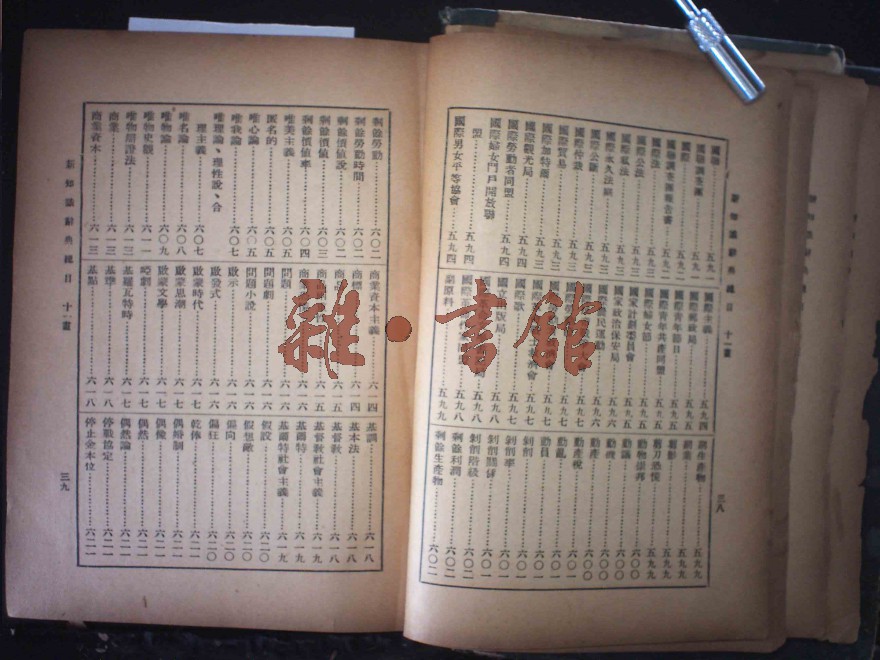 新知識辭典總目 十一畫
三八
國聯……五九一
國聯調查團……五九一
國聯調查團報告書……五九二
國際……五九二
國際法……五九二
國際公法……五九二
國際私法……五九三
國際永久法庭……五九三
國際公斷……五九三
國際仲裁……五九三
國際貿易……五九三
國際加特爾……五九三
國際觀光局……五九三
國際勞動者同盟……五九四
國際婦女門戶開放聯
盟……五九四
國際男女平等協會……五九四
國際主義……五九四
國際郵政局……五九五
國際青年節日……五九五
國際青年共產同盟……五九五
國際婦女節……五九五
國家計劃委員會……五九五
國家政治保安局……五九六
國際農民運動……五九六
國際歌……五九七
棄原料……五九九
剪刀恐慌……五九九
動物崇拜……五九九
動議……六〇〇
動機……六〇〇
動產……六〇〇
動產稅……六〇一
動亂……六〇一
動員……六〇一
剝削……六〇一
剝削率……六〇一
剝削關係……六〇一
剝削階級……六〇一
剩餘利潤……六〇二
剩餘生產物……六〇二
剩餘勞動……六〇二
剩餘勞動時間……六〇二
剩餘價值說……六〇二
剩餘價值……六〇三
剩餘價值率……六〇四
唯美主義……六〇五
匿名的……六〇五
唯心論……六〇五
唯我論……六〇七
唯理論、理性說、合
理主義……六〇七
唯名論……六〇八
唯物論……六〇九
唯物史觀……六一一
唯物辯證法……六一三
商業……六一三
商業資本……六一三
商業資本主義……六一四
商標……六一四
問題……六一六
問題劇……六一六
問題小說……六一六
啟示……六一六
啟發式……六一六
啟蒙時代……六一七
啟蒙思潮……六一七
啟蒙文學……六一七
啞劇……六一七
基羅瓦特時……六一七
基準……六一八
基點……六一八
基調……六一八
基本法……六一八
基督教……六一八
基督教社會主義……六一九
基爾特……六一九
基爾特社會主義……六一九
假設……六二〇
假想敵……六二〇
偏向……六二〇
偏狂……六二〇
乾俸……六二一
偶婚制……六二一
偶像……六二一
偶然……六二一
偶然論……六二一
停戰協定……六二一
停止金本位……六二一
新知識辭典總目 十一畫
三九
雜·書館